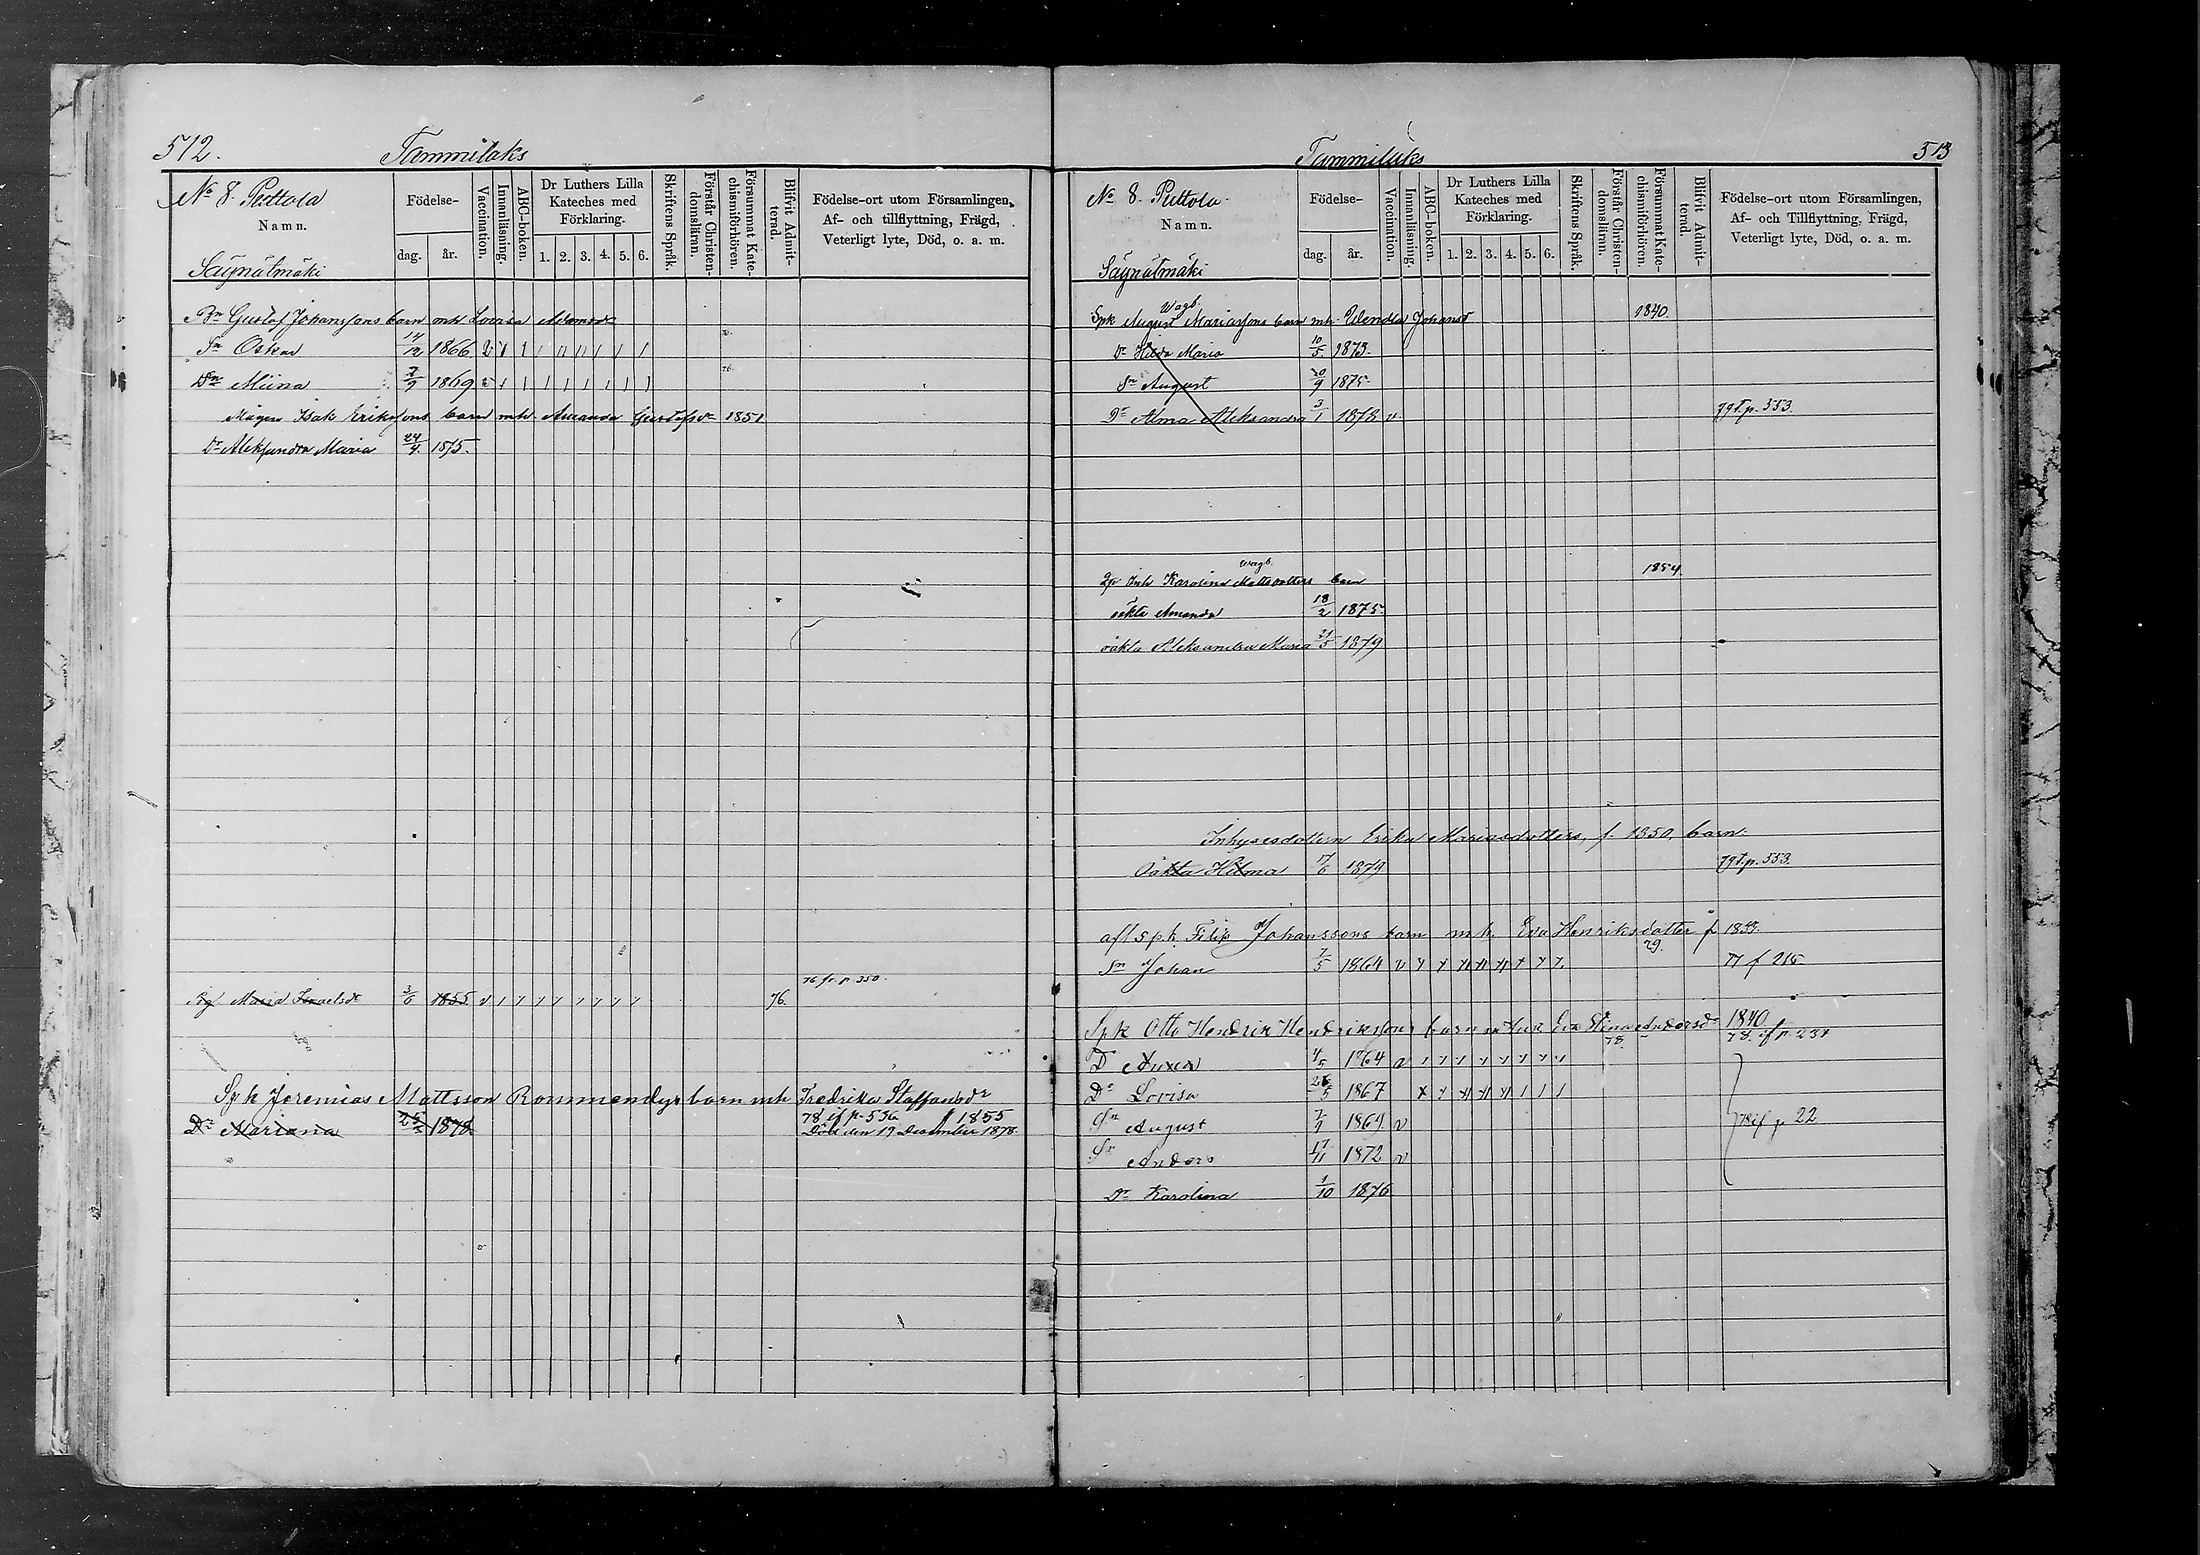 512. Tammilaks
No 8. Puttola
Namn.
Säynätmäki
Födelse-
dag. år.
Vaccination.
Innanläsning.
ABC-boken.
Dr Luthers Lilla Kateches med Förklaring.
1. 2. 3. 4. 5. 6.
Skriftens Språk.
Förstår Christendomsläran.
Försummat Katechismiförhören.
Blifvit Admitterad.
Födelse-ort utom Församlingen,
Af- och tillflyttning, Frägd,
Veterligt lyte, Död, o. a. m.
Bn Gustaf Johanssons barn mh Lovisa Adamsdr
Sn Oskar 14/12 1866 v
Dr Miina 7/9 1869 v 76.
Mågen Isak Erikssons barn mh. Amanda Gustafsdr 1851
Dr Aleksandra Maria 24/4. 1875.
76 fr. p. 350.
Pig Maria Israelsdr 3/6 1855 v 76.
Spk Jeremias Mattsson Rommendys barn mh Fredrika Staffansdr
78 if p. 536 f 1855
Dr Mariana 25/5 1878 Död den 19 December 1878.
Tammilaks 513
No 8. Puttola.
Namn.
Säynätmäki
Födelse-
dag. år.
Vaccination.
Innanläsning.
ABC-boken.
Dr Luthers Lilla Kateches med Förklaring.
1. 2. 3. 4. 5. 6.
Skriftens Språk.
Förstår Christendomsläran.
Försummat Katechismiförhören.
Blifvit Admitterad.
Födelse-ort utom Församlingen,
Af- och Tillflyttning, Frägd,
Veterligt lyte, Död, o. a. m.
Wagb.
Spk August Mariassons barn mh. Wendla Johansd 1840.
Dr Hilda Maria 10/5 1873.
Sn August 20/9 1875.
Dr Alma Aleksandra 3/1 1878 v 79 t. p. 553.
wagb.
Karolina Mattsdotters barn 1854.
oäkta Amanda 18/2 1875.
oäkta Aleksandra Maria 21/5 1879
Inhysesdottern Erika Mariasdotters, f. 1850, barn.
Oäkta Hilma 17/6 1879 79 t. p. 553.
afl spk. Filip Johanssons barn mh. Eva Henriksdotter f 1839.
Sn Johan 1/5 1864 v 79. 77 f 216
Spk Otto Hendrik Hendrikssons barn m hu Eva Stina Andersdr 1840
78. 78. if p 231
Dr Anna 4/5 1864 v
Dr Lovisa 26/5 1867
Sn August 7/9 1869 v 78 if p 22
Sn Anders 17/11 1872 v
Dr Karolina 1/10 1876